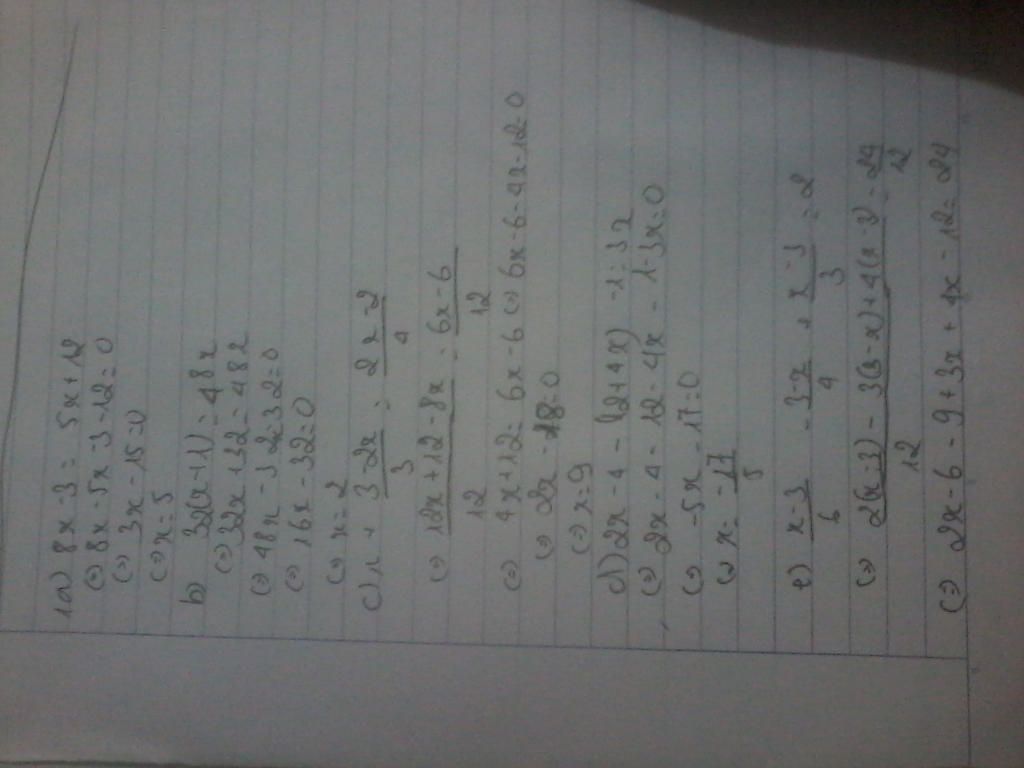 1a) 8x-3 = 5x+12
(=) 8x-5x-3-12=0
(=) 3x-15=0
(=) x=5
b) 32(x+1) = 48x
(=) 32x+32=48x
(=) 48x-32x-32=0
(=) 16x-32=0
(=) x=2
c) x + 3-2x/3 = 2x-2/4
(=) 12x+12-8x/12 = 6x-6/12
(=) 4x+12= 6x-6 (=) 6x-6-4x-12=0
(=) 2x-18=0
(=) x=9
d) 2x-4-(12+4x)-1=3x
(=) 2x-4-12-4x-1-3x=0
(=) -5x-17=0
(=) x=-17/5
e) x-3/6 - 3-x/4 + x-3/3 = 2
(=) 2(x-3)-3(3-x)+4(x-3)/12 = 24/12
(=) 2x-6-9+3x+4x-12=24